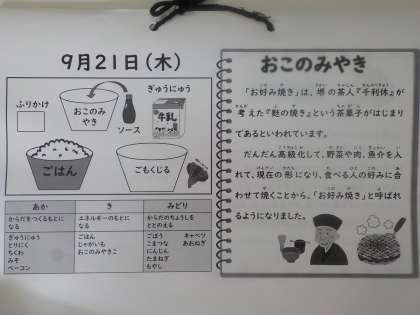 9月21日(木)
ふりかけ
おこのみ
やき
ソース
ぎゅうにゅう
牛乳
ごはん
ごもくじる
あか
き
みどり
からだをつくるもとに
なる
エネルギーのもとに
なる
からだのちょうしを
ととのえる
ぎゅうにゅう
とりにく
ちくわ
みそ
ベーコン
ごはん
じゃがいも
おこのみやきこ
ごぼう キャベツ
こまつな あおねぎ
にんじん
たまねぎ
もやし
おこのみやき
「お好み焼き」は、堺の茶人『千利休』が
考えた『麩の焼き』という茶菓子がはじまり
であるといわれています。
だんだん高級化して、野菜や肉、魚介を入
れて、現在の形になり、食べる人の好みに合
わせて焼くことから、「お好み焼き」と呼ばれ
るようになりました。